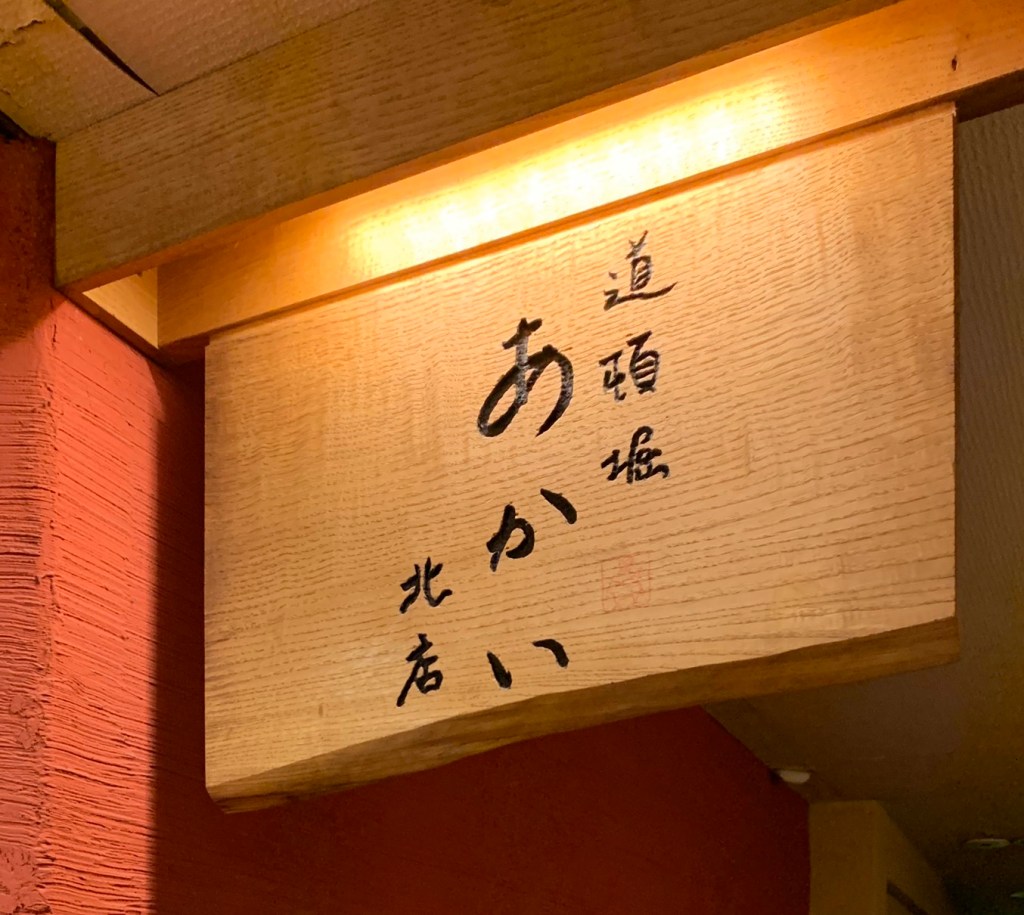 道頓堀
あかい
北店